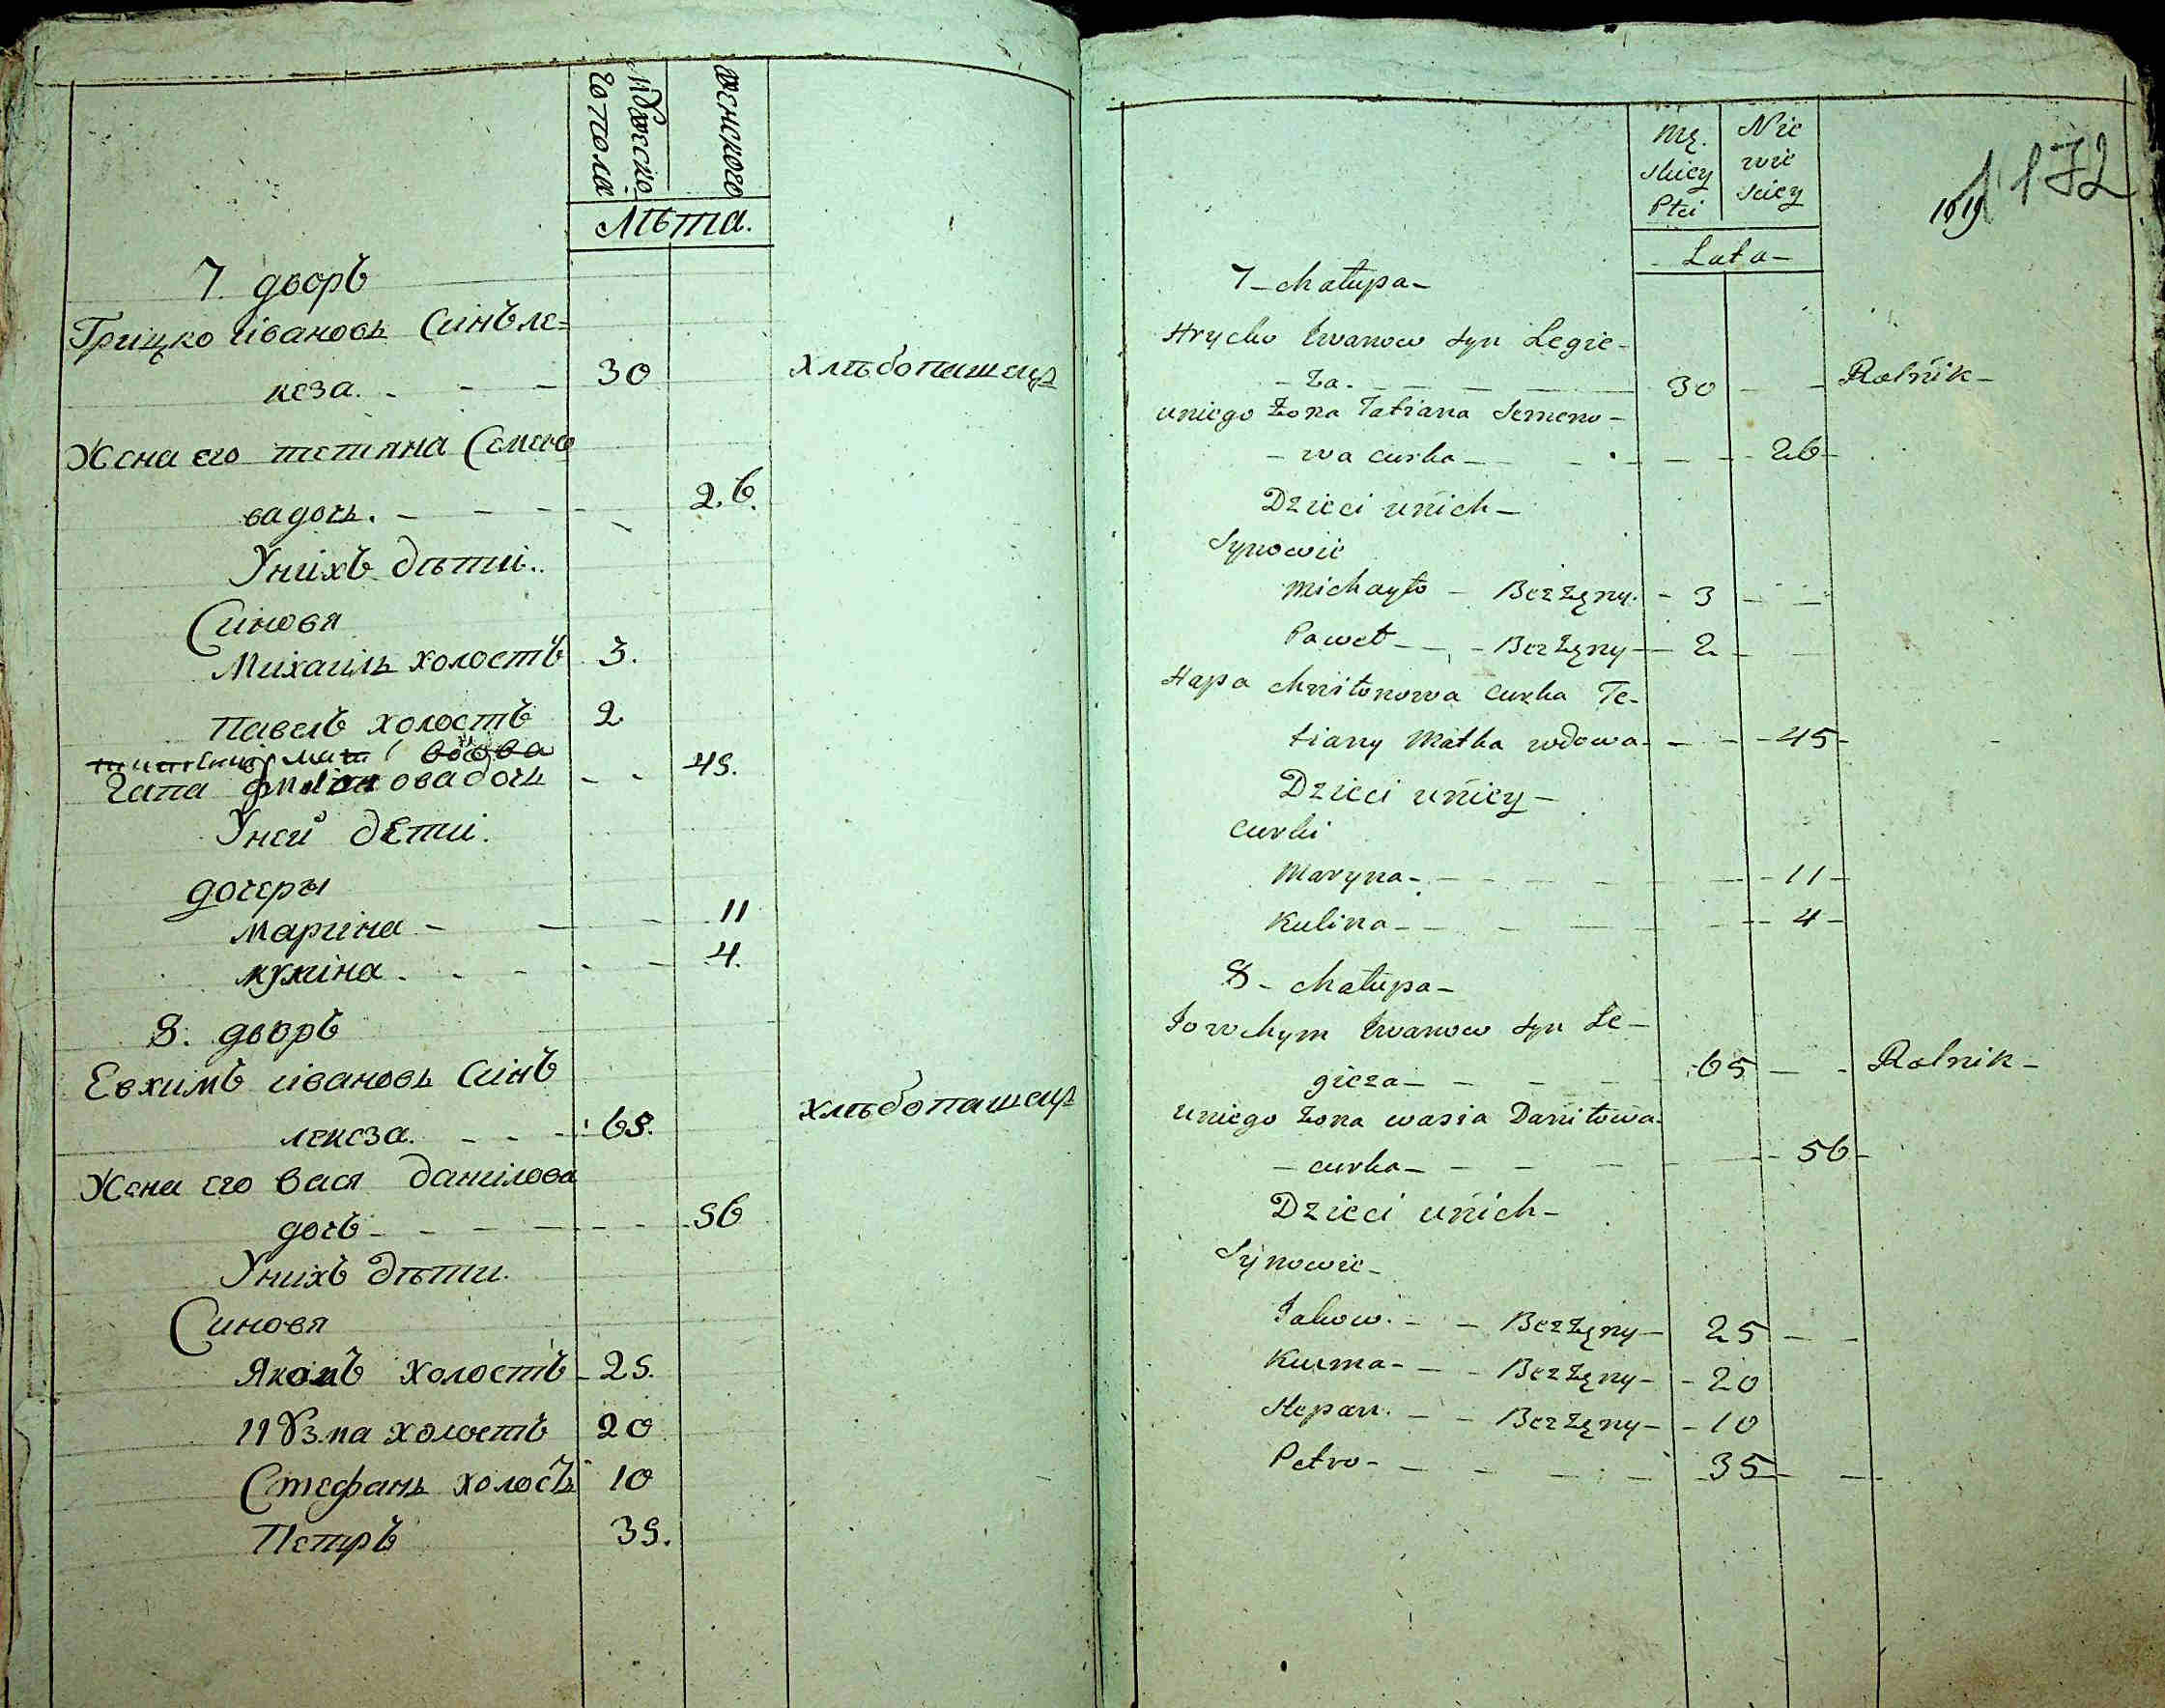 Мужеско-
го пола
женского
Лѣта.
7. дворъ
Грицко івановъ Синъ ле=
кеза. - - - 30 хлѣбопашецъ
Жена его тетяна Семено
ва дочь. - - - 26.
Унихъ дѣти..
Синовя
Михаилъ холостъ 3.
Павелъ холостъ 2
вдова
Гапа овадочь - - 45.
Уней дети.
дочеры
марина - - - 11
кулина. - - - 4.
8. дворъ
Евхимъ івановъ Синъ
лекеза. - - - 65. хлѣбопашецъ
Жена его Вася данилова
дочъ - - - - 56
Унихъ дѣти.
Синовя
Яковъ холостъ - 25.
Кузма холостъ 20
Стефанъ холосъ 10
Петръ 35.
Mę.
skiey
Płci
Nie
wie
sciey
Lata -
172
7 - chałupa -
Hrycko Iwanow syn Legie-
- za. - - - 30 - - Rolnik -
uniego żona Tatiana Semeno -
- wa curka - - - - 26 -
Dzieci unich -
Synowie
Michayło - Bezżęny. - 3 - -
Paweł - - - Bezżęny - - 2 - -
Hapa Chwiłonowa curka Te-
tiany Matka wdowa - - - 45 -
Dzieci uniey -
curki
Maryna - - - - 11 -
Kulina - - - - 4 -
8 - chałupa -
Jowchym Iwanow syn Le -
gieza - - - - 65 - - Rolnik -
uniego żona wasia Daniłowa -
- curka - - - - 56 -
Dzieci unich -
Synowie -
Jakow. - - Bezżęny - 25 - -
Kuzma - - - Bezżęny - - 20
Stepan. - - Bezżęny - - 10
Petro - - - - 35 - -